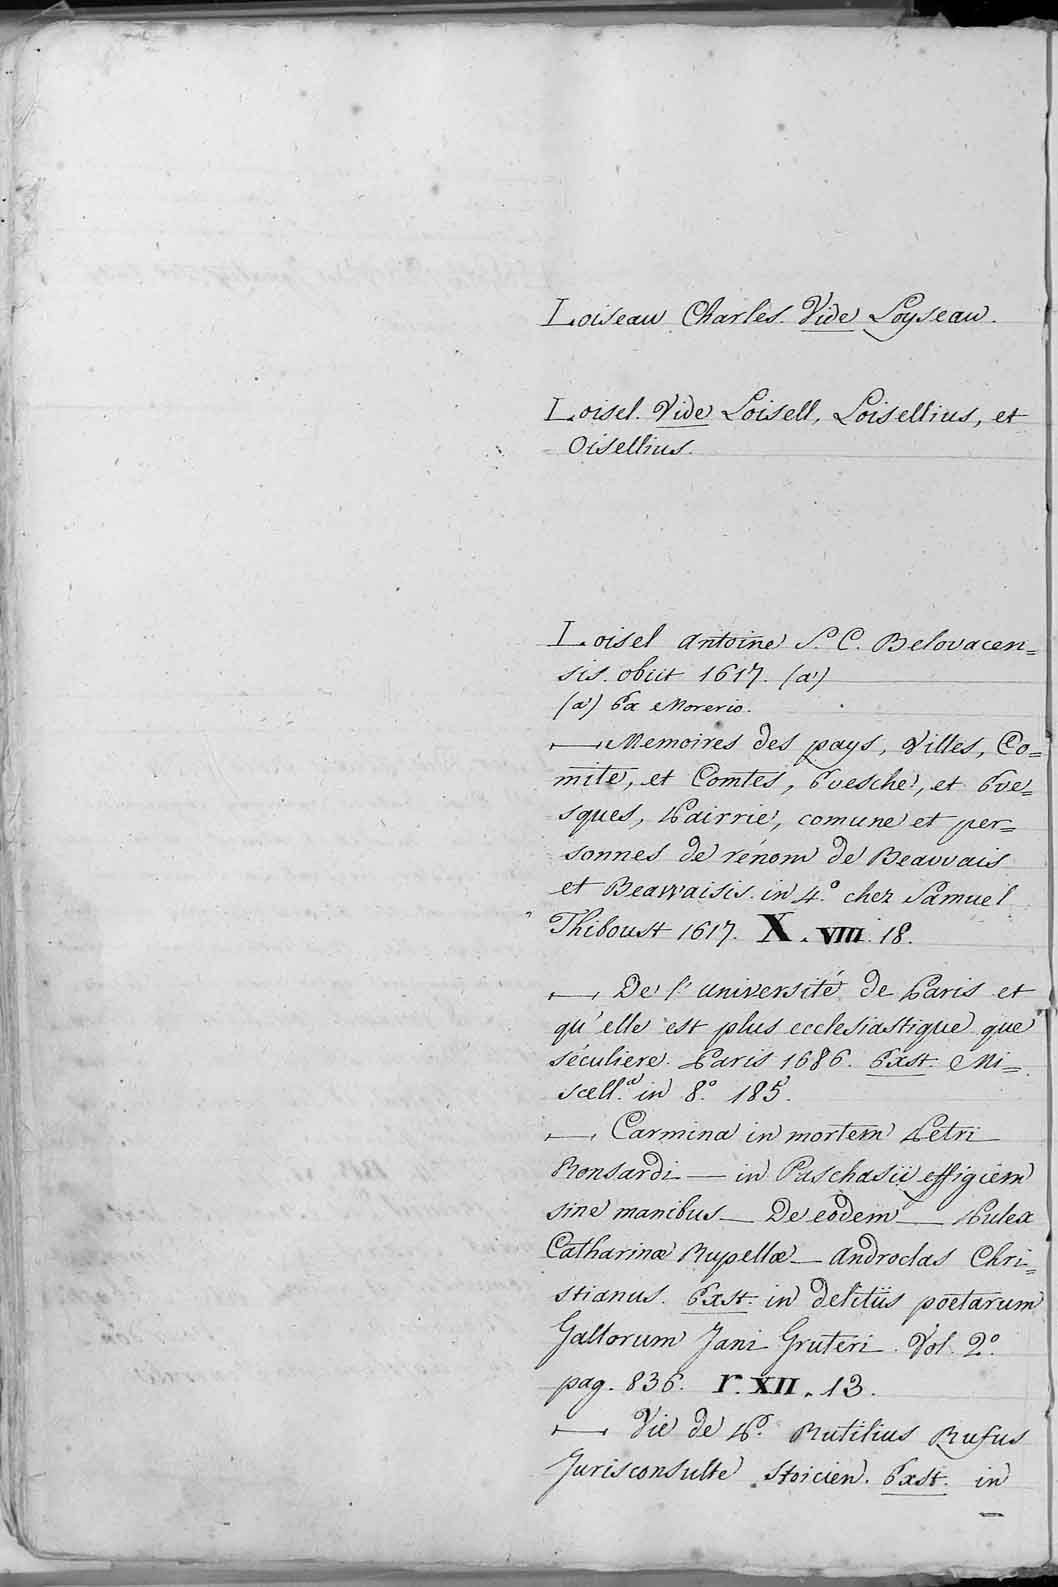 Loiseau Charles. Vide Loyseau.
Loisel. Vide Loisell, Loisellius, et
Oisellius.
Loisel Antoine J. C. Belovacen=
sis. obiit 1617. (a)
(a) Ex Morerio.
Memoires des pays, Villes, Co=
mité, et Comtes, Evesché, et Eve=
sques, Pairrie, comune et per=
sonnes de rénom de Beauvais
et Beauvaisis. in 4.º chez Samuel
Thiboust 1617. X. VIII. 18.
De l'université de Paris et
qu'elle est plus ecclesiastique que
séculiere. Paris 1686. Exst. Mi=
scell.ª in 8.º 185.
Carmina in mortem Petri
Ronsardi — in Paschasii effigiem
sine manibus — De eodem — Pulex
Catharinæ Rupellæ — Androclas Chri=
stianus. Exst. in delitiis poetarum
Gallorum Jani Gruteri. Vol. 2.º
pag. 836. r. XII. 13.
Vie de P. Rutilius Rufus
Jurisconsulte stoicien. Exst. in